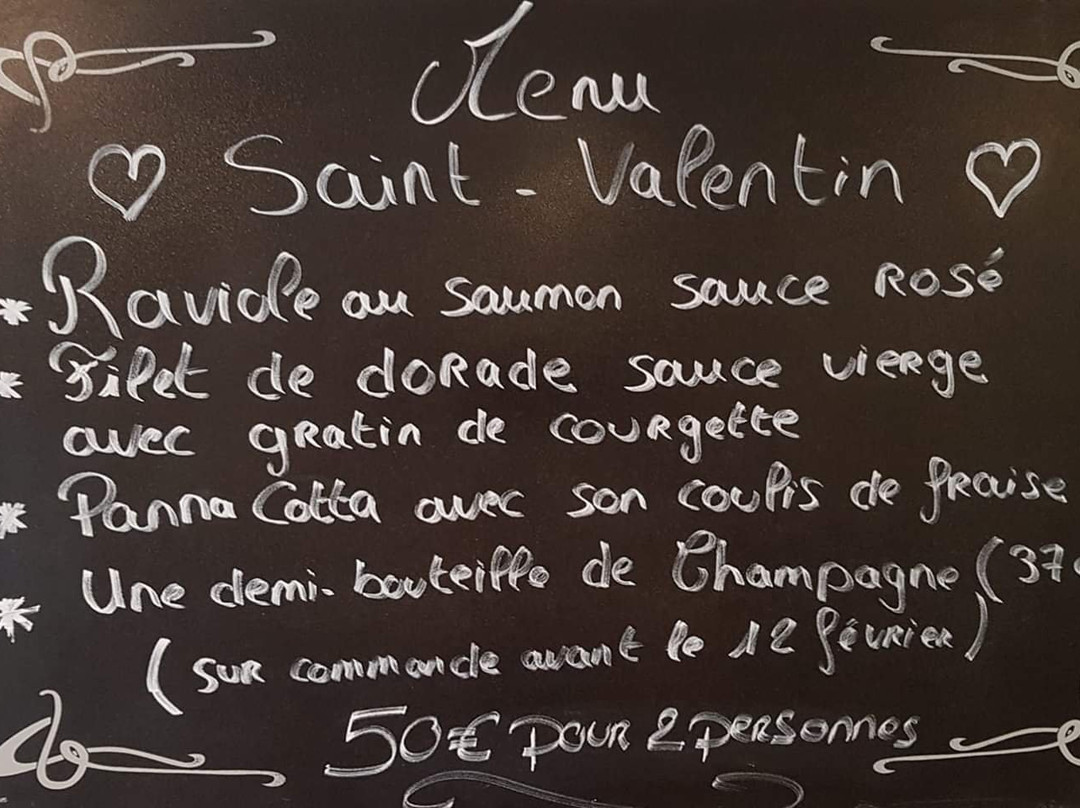 Menu
♡ Saint-Valentin ♡
* Raviole au saumon sauce Rosé
* Filet de dorade sauce vierge
avec gratin de courgette
* Panna Cotta avec son coulis de fraise
* Une demi-bouteille de Champagne (37
(sur commande avant le 12 février)
50€ pour 2 personnes